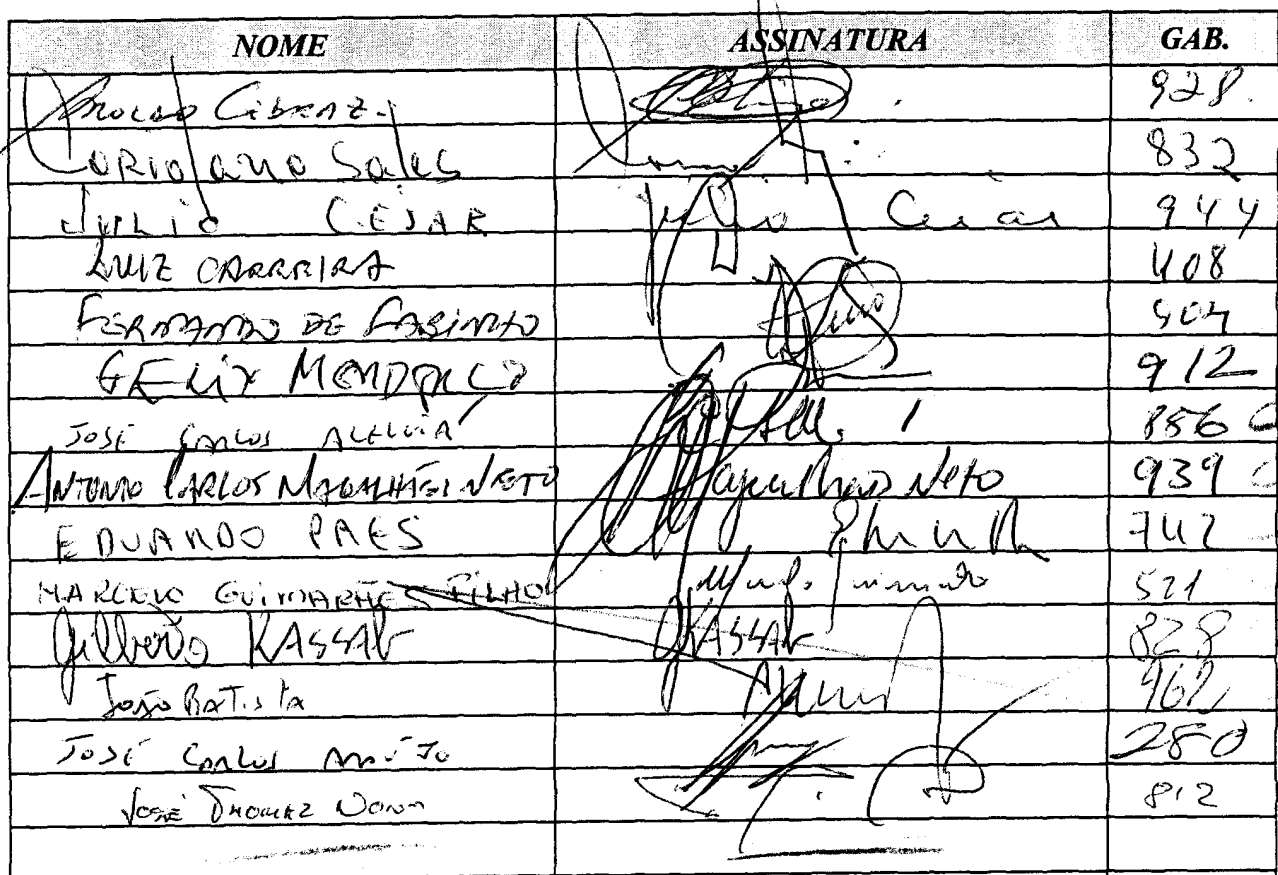 NOME ASSINATURA GAB.
Aroldo Cedraz. 928.
Coriolano Sales 832
JULIO CESAR Júlio César 944
LUIZ CARREIRA 408
FERNANDO DE FABINHO 904
FELIX MENDONÇA 912
JOSÉ CARLOS ALELUIA 856
ANTONIO CARLOS MAGALHÃES NETO Magalhães Neto 939
EDUARDO PAES 742
MARCELO GUIMARÃES FILHO 521
Gilberto KASSAB GKASSAB 828
João Batista 962
JOSÉ Carlos Araújo 280
JOSÉ THOMAZ NONO 812